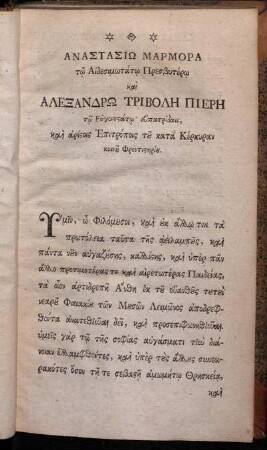 ΑΝΑΣΤΑΣΙΩ ΜΑΡΜΟΡΑ
τῷ Αἰδεσιμωτάτῳ Πρεσβυτέρῳ
καὶ
ΑΛΕΞΑΝΔΡΩ ΤΡΙΒΟΛΗ ΠΙΕΡΗ
τῷ Εὐγενεστάτῳ εὐπατρίδῃ,
καὶ ἀρίστοις Ἐπιτρόποις τοῦ κατὰ Κέρκυραν
κοινοῦ Φροντιστηρίου.
Ὑμῖν, ὦ Φιλόμουσοι, καὶ ἐκ ἄλλῳ τινι τὰ
πρωτόλεια ταῦτα τῆς ἀειλαμποῦς, καὶ
πάντα νοῦν αὐγαζούσης, καλλίστης, καὶ ὑπὲρ πᾶν
ἄλλο προτιμοτέρας τε καὶ αἱρετωτέρας Παιδείας,
τὰ οἷον ἀρτιδρεπῆ Ἄνθη ἐκ τοῦ εὐανθοῦς τουτουῒ
νεαροῦ Φαιακικοῦ τῶν Μουσῶν Λειμῶνος ἀποδρεφ-
θέντα ἀνατεθῆναι δεῖ, καὶ προσεπιφωνηθῆναι.
ὑμεῖς γὰρ τῷ τῆς σοφίας αὐγάσματι τὴν διά-
νοιαν ἐλλαμφθέντες, καὶ ὑπὲρ τοὺς ἄλλους συνεω-
ρακότες ὅσον τῇ τε σεβαστῇ ἀμωμήτῳ Θρησκείᾳ,
καὶ